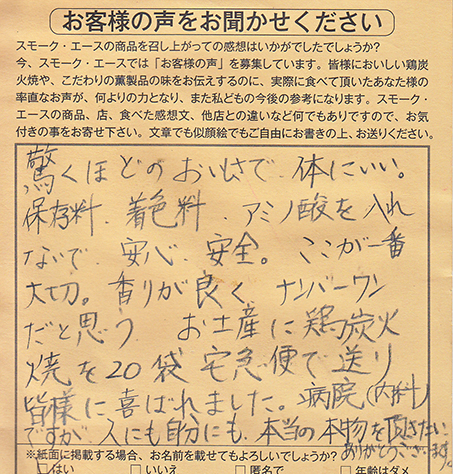 お客様の声をお聞かせください
スモーク・エースの商品を召し上がっての感想はいかがでしたでしょうか?
今、スモーク・エースでは「お客様の声」を募集しています。皆様においしい鶏炭
火焼や、こだわりの薫製品の味をお伝えするのに、実際に食べて頂いたあなた様の
率直なお声が、何よりの力となり、また私どもの今後の参考になります。スモーク・
エースの商品、店、食べた感想文、他店との違いなど何でもありですので、お気
付きの事をお寄せ下さい。文章でも似顔絵でもご自由にお書きの上、お送りください。
驚くほどのおいしさで 体にいい。
保存料、着色料、アミノ酸を入れ
ないで 安心 安全。 ここが一番
大切。香りが良く ナンバーワン
だと思う お土産に鶏炭火
焼を20袋 宅急便で送り
皆様に喜ばれました。病院(内科)
ですが 人にも自分にも、本当の本物を頂きたい
ありがとうございます。
※紙面に掲載する場合、お名前を載せてもよろしいでしょうか?
□はい □いいえ □匿名で □年齢はダメ